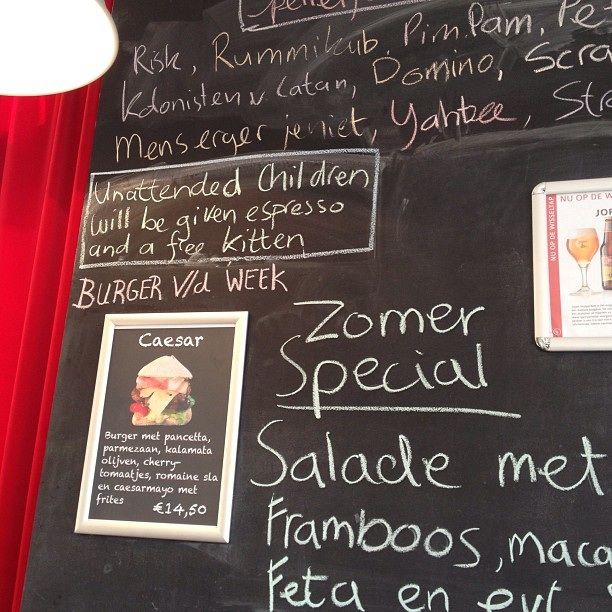 Risk, Rummikub, Pim Pam,
Kolonisten v Catan, Domino,
Mens erger je niet, Yahtzee,
Unattended Children
will be given espresso
and a free kitten
BURGER V/d WEEK
Caesar
Burger met pancetta,
parmezaan, kalamata
olijven, cherry-
tomaatjes, romaine sla
en caesarmayo met
frites
€14,50
Zomer
Special
Salade met
Framboos, maca
Feta en
NU OP DE W
NU OP DE WISSELTAP
JOP